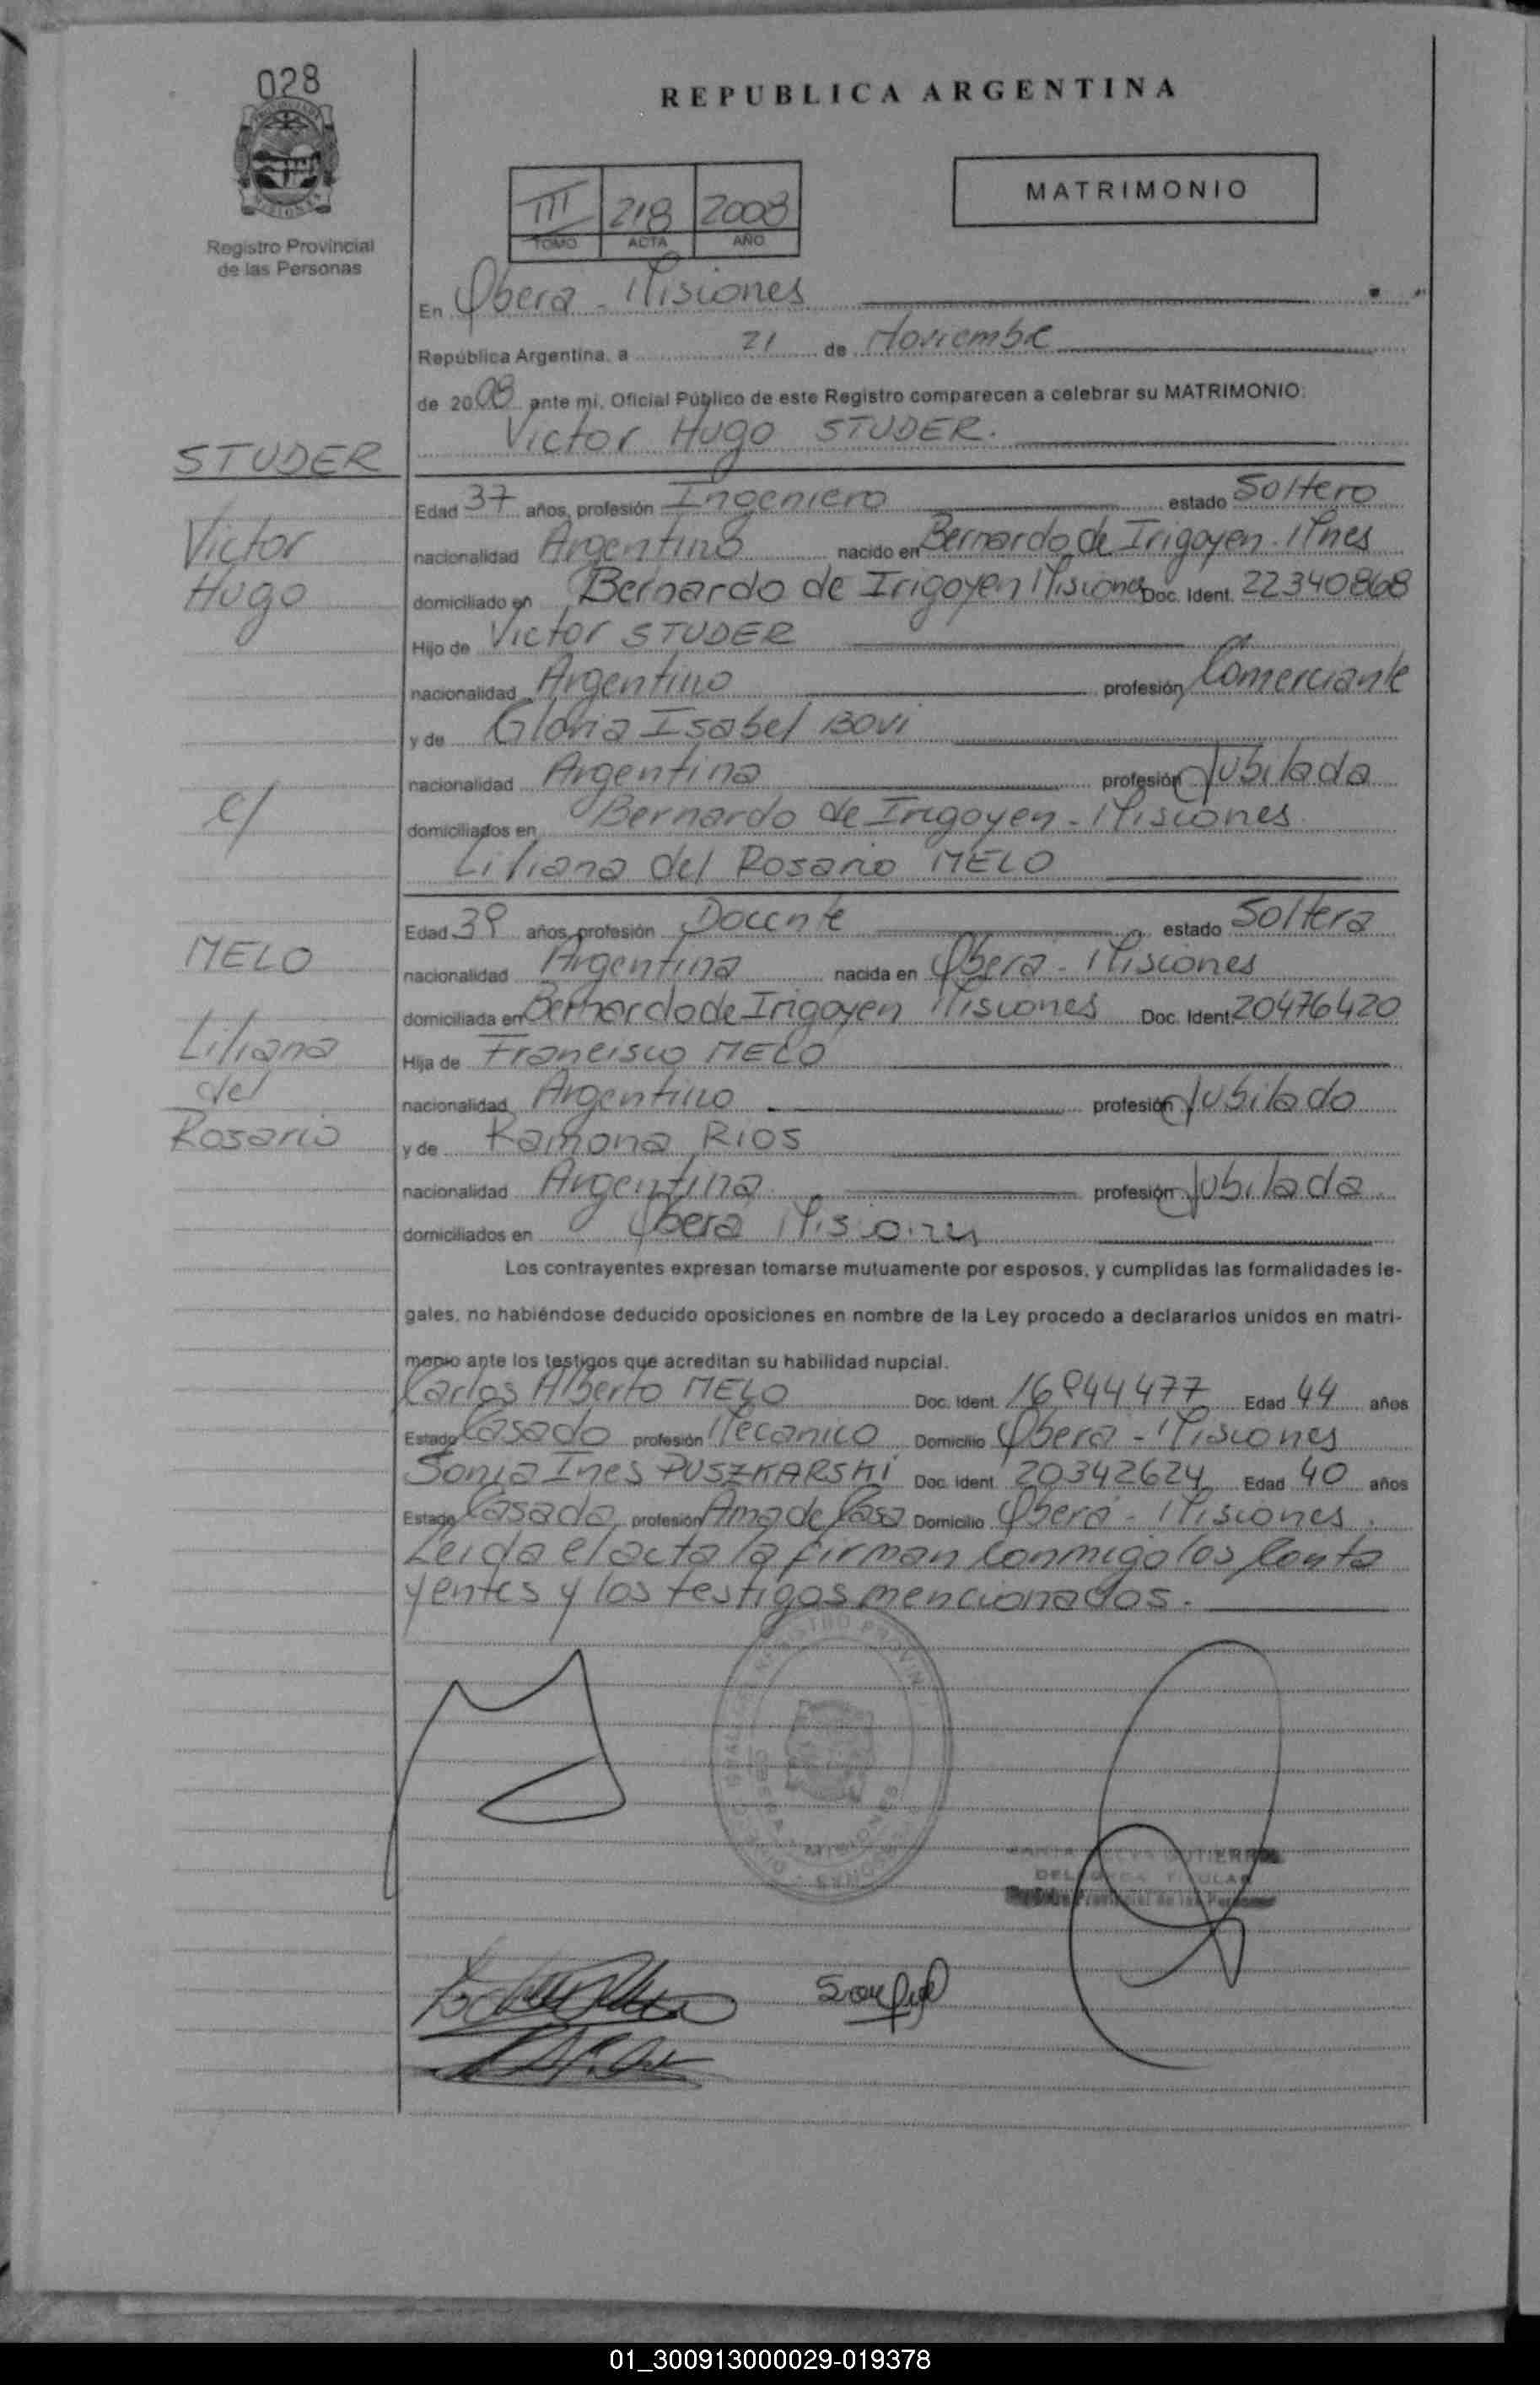 028
Registro Provincial
de las Personas
REPUBLICA ARGENTINA
III 218 2008
TOMO ACTA AÑO
MATRIMONIO
En Oberá - Misiones
República Argentina, a 21 de Noviembre
de 2008 ante mi, Oficial Público de este Registro comparecen a celebrar su MATRIMONIO:
Victor Hugo STUDER.
STUDER
Victor
Hugo
Edad 37 años, profesión Ingeniero estado Soltero
nacionalidad Argentino nacido en Bernardo de Irigoyen - Mnes
domiciliado en Bernardo de Irigoyen Misiones Doc. Ident. 22340868
Hijo de Victor STUDER
nacionalidad Argentino profesión Comerciante
y de Gloria Isabel BOVI
nacionalidad Argentina profesión Jubilada
domiciliados en Bernardo de Irigoyen - Misiones
c/
Liliana del Rosario MELO
MELO
Liliana
del
Rosario
Edad 39 años, profesión Docente estado Soltera
nacionalidad Argentina nacida en Oberá - Misiones
domiciliada en Bernardo de Irigoyen Misiones Doc. Ident. 20476420
Hija de Francisco MELO
nacionalidad Argentino profesión Jubilado
y de Ramona RIOS
nacionalidad Argentina profesión Jubilada
domiciliados en Oberá Misiones
Los contrayentes expresan tomarse mutuamente por esposos, y cumplidas las formalidades le-
gales, no habiéndose deducido oposiciones en nombre de la Ley procedo a declararlos unidos en matri-
monio ante los testigos que acreditan su habilidad nupcial.
Carlos Alberto MELO Doc. Ident. 16944477 Edad 44 años
Estado Casado profesión Mecanico Domicilio Oberá - Misiones
Sonia Ines PUSZKARSKI Doc. Ident. 20342624 Edad 40 años
Estado Casada profesión Ama de Casa Domicilio Oberá - Misiones.
Leida el acta la firman conmigo los conta
yentes y los testigos mencionados.
MISIONES
GUTIERREZ
DELEGADA TITULAR
Registro Provincial de las Personas
01_300913000029-019378